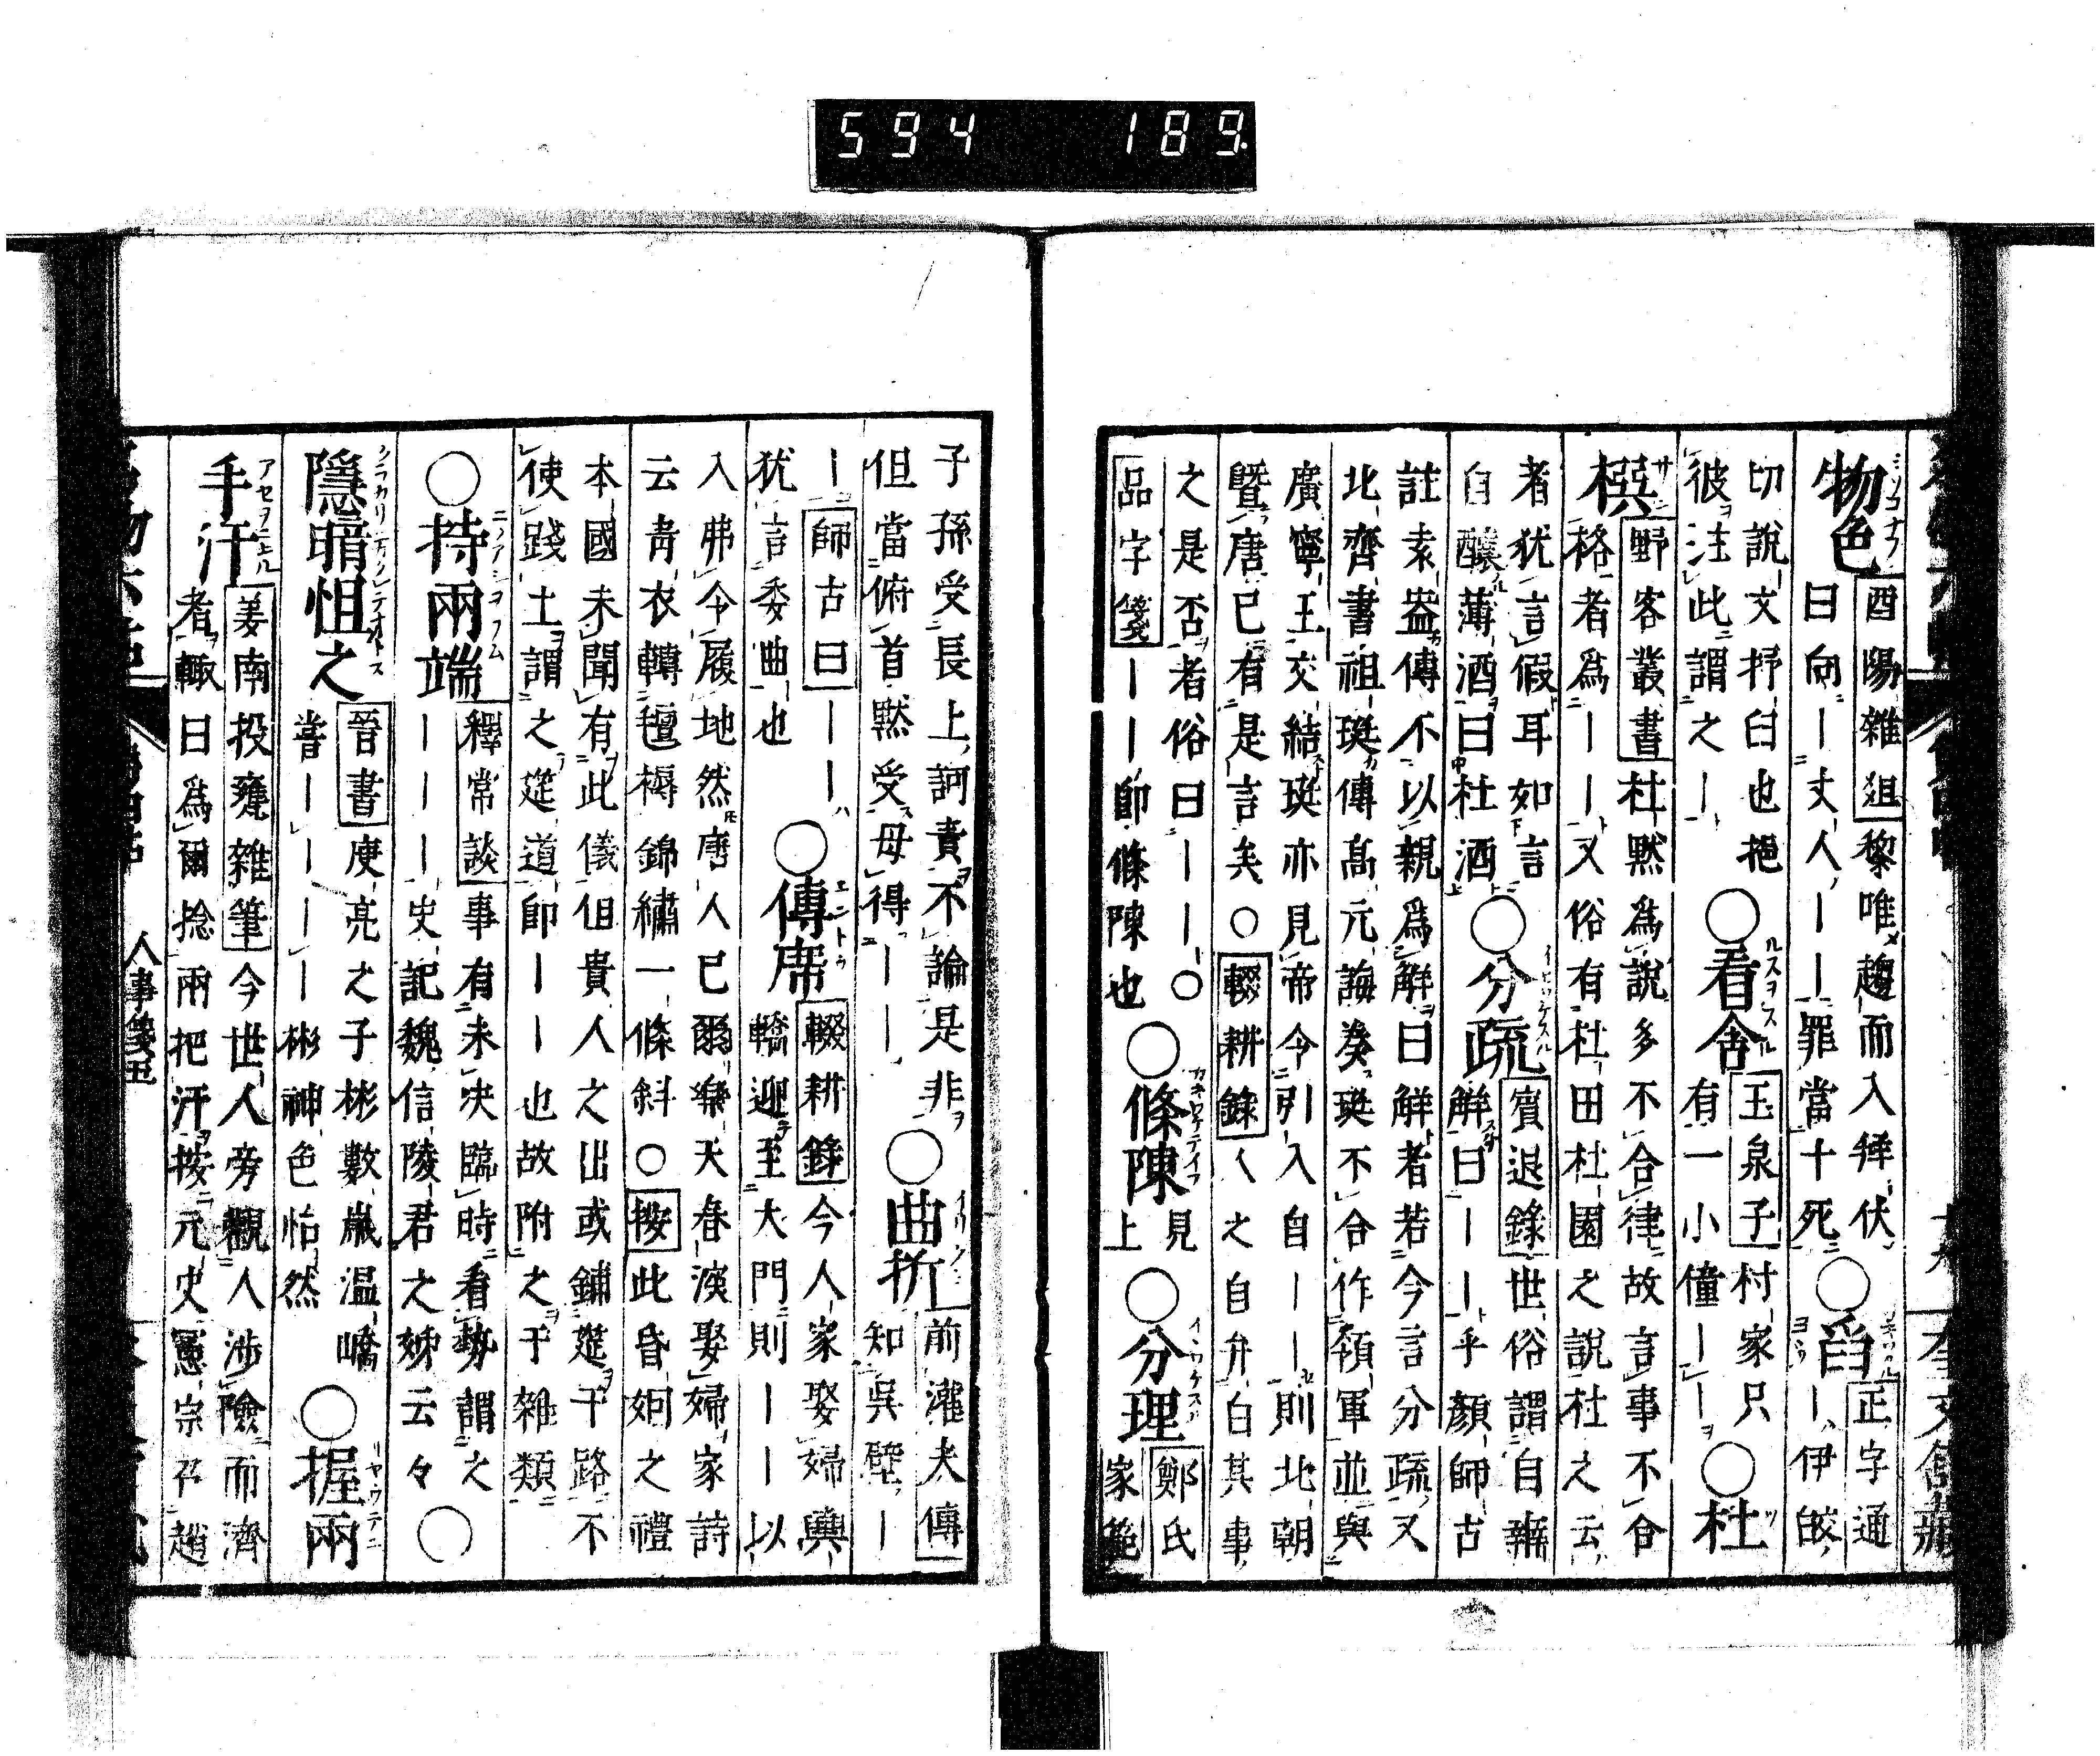 594 189
物色 酉陽雜俎 黎唯趨而入拜伏
曰向｜丈人｜｜罪當十死 ○舀 正字通
切說文抒臼也挹 ○看舍 玉泉子 村家只
彼注此謂之｜ 有一小僮｜｜ ○杜
撰 野客叢書 杜默爲說多不合律故言事不合
格者爲｜｜又俗有杜田杜園之說杜之云
者犹言假耳如言 ○分疏 賓退錄 世俗謂自辨
自釀薄酒曰杜酒 解曰｜｜乎顏師古
註袁盎傳不以親爲解曰解者若今言分疏又
北齊書祖珽傳高元海奏珽不合作領軍並與
廣寧王交結珽亦見帝令引入自｜｜則北朝
曁唐已有是言矣○輟耕錄人之自弁白其事
之是否者俗曰｜｜○ ○條陳 見
品字箋｜｜卽條陳也 上 ○分理 鄭氏
家範
子孫受長上訶責不論是非 ○曲折 前灌夫傳
但當俯首黙受毋得｜｜ 知吳壁｜
｜師古曰｜｜ ○傳席 輟耕錄 今人家娶婦輿
犹言委曲也 轎迎至大門則｜｜以
入弗令履地然唐人已爾樂天春深娶婦家詩
云靑衣轉氊褥錦繡一條斜○按此昏姻之禮
本國未聞有此儀但貴人之出或鋪筵于路不
使踐土謂之筵道卽｜｜也故附之于雜類
○持兩端 釋常談 事有未决臨時看勢謂之
｜｜｜史記魏信陵君之姊云々 ○
隱暗怛之 晉書 庾亮之子彬數嵗温嶠
嘗｜｜｜｜彬神色怡然 ○握兩
手汗 姜南投甕雜筆 今世人旁觀人渉險而濟
者輙曰爲爾捻兩把汗按元史憲宗召趙
人事箋五